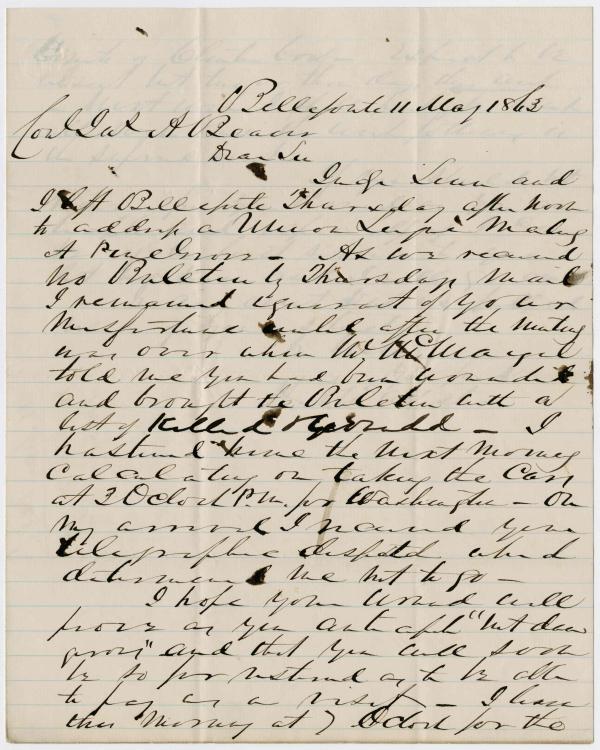 Bellefonte 11 May 1863
Col Jas A Beaver
Dear Sir
Judge Linn and
I left Bellefonte Thursday afternoon
to address a Union League Meeting
at Pine Grove – As we received
no Bulletin by Thursdays mail
I remained ignorant of your
misfortune until after the meeting
was over when Mr
told me you had been wounded
and brought the Bulletin with a
list of Killed & Wounded – I
hastened home the next morning
calculating on taking the Cars
at 3 Oclock P.M. for Washington – On
my arrival I received your
telegraphic dispatch which
determined me not to go –
I hope your wound will
prove as you "not dan
gerous" and that you will soon
be so far restored as to be able
to pay us a visit – I leave
this morning at 7 Oclock for the